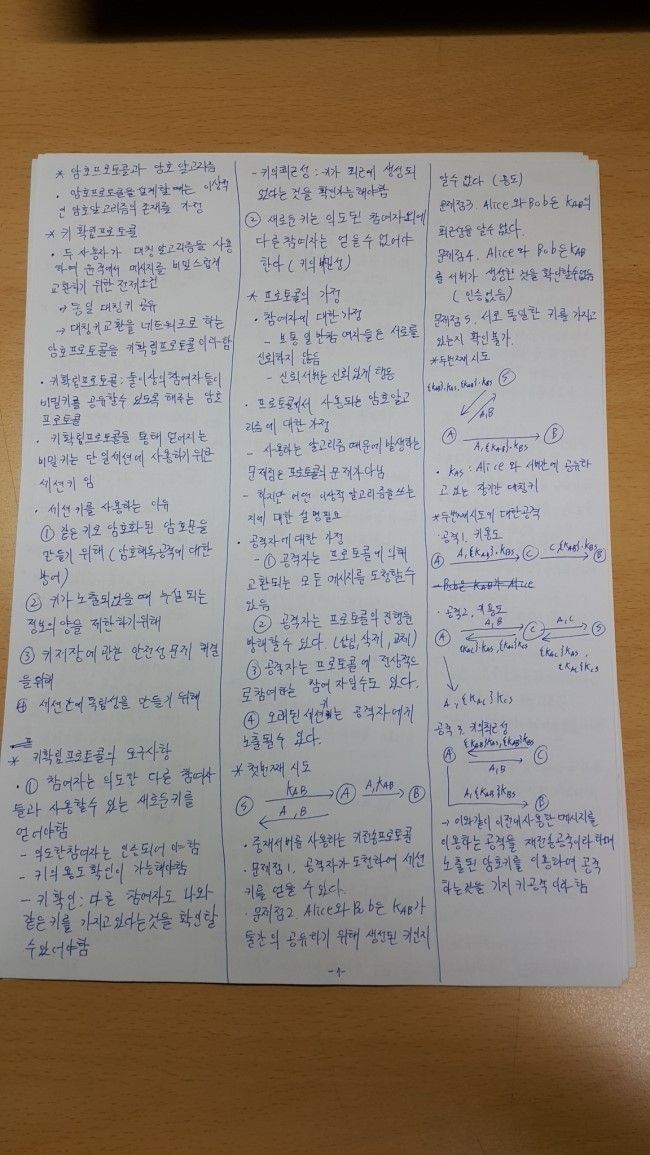 * 암호프로토콜과 암호 알고리즘
· 암호프로토콜을 설계할 때는 이상적
인 암호알고리즘의 존재를 가정
* 키 확립프로토콜
· 두 사용자가 대칭알고리즘을 사용
하여 원격에서 메시지를 비밀스럽게
교환하기 위한 전제조건
→ 동일 대칭키 공유
→ 대칭키교환을 네트워크로 하는
암호프로토콜을 키확립프로토콜이라 함
· 키확립프로토콜 : 둘이상의 참여자들이
비밀키를 공유할수 있도록 해주는 암호
프로토콜
· 키확립프로토콜을 통해 얻어지는
비밀키는 단일세션에 사용하기위한
세션키 임
· 세션키를 사용하는 이유
① 같은 키로 암호화 된 암호문을
만들기 위해 (암호해독공격에 대한
방어)
② 키가 노출되었을 때 누설 되는
정보의 양을 제한하기위해
③ 키저장에 관한 안전성 문제 해결
을 위해
④ 세션간에 독립성을 만들기 위해
* 키확립프로토콜의 요구사항
· ① 참여자는 의도한 다른 참여자
들과 사용할수 있는 새로운키를
얻어야함
- 의도한참여자는 인증되어 야 함
- 키의 용도 확인이 가능해야함
- 키 확인 : 다른 참여자도 나와
같은 키를 가지고 있다는것을 확인할
수 있어야함
- 키의최근성 : 키가 최근에 생성되
었다는 것을 확인가능해야함
② 새로운키는 의도된 참여자외에
다른참여자는 얻을 수 없어야
한다 (키의비밀성)
* 프로토콜의 가정
· 참여자에 대한가정
- 보통 일반참여자들은 서로를
신뢰하지 않음
- 신뢰서버는 신뢰있게 행동
· 프로토콜에서 사용되는 암호알고
리즘에 대한 가정
- 사용하는 알고리즘 때문에 발생하는
문제점은 프로토콜의 문제가 아님
- 하지만 어떤 이상적 알고리즘을 쓰는
지에 대한 설명필요
· 공격자에 대한 가정
- ① 공격자는 프로토콜에 의해
교환되는 모든 메시지를 도청할수
있음
② 공격자는 프로토콜의 진행을
방해할수 있다. (삽입, 삭제, 교체)
③ 공격자는 프로토콜에 정상적으
로참여하는 참여자일수도 있다.
④ 오래된 세션키는 공격자에게
노출될수 있다.
* 첫번째 시도
S KAB A A, KAB B
A, B
· 중재서버를 사용하는 키전송프로토콜
· 문제점 1. 공격자가 도청하여 세션
키를 얻을 수 있다.
· 문제점2. Alice와 Bob은 KAB가
둘간의 공유하기 위해 생성된 키인지
-1-
알수 없다 (용도)
문제점3. Alice 와 Bob은 KAB의
최근성을 알수 없다.
문제점4. Alice와 Bob은 KAB
를 서버가 생성한 것을 확인할수없음
(인증없음)
문제점 5. 서로 동일한 키를 가지고
있는지 확인불가.
* 두번째 시도
{KAB}.KAS, {KAB}.KBS S
A, B
A A, {KAB}.KBS B
· KAS : Alice 와 서버간에 공유하
고 있는 장기간 대칭키
* 두번째시도에 대한공격
· 공격1. 키용도
A A, {KAB}.KBS C C, {KAB}.KBS B
· 공격2. 키용도
A A, B C A, C S
{KAC}.KAS, {KAC}KCS
{KAC}KAS,
{KAC}KCS
A, {KAC}KCS
공격 3. 키의최근성
{KAB}KAS, {KAB}KBS
A A, B C
A, {KAB}KBS
B
→ 이와같이 이전에사용한 메시지를
이용하는 공격을 재전송공격이라 하며
노출된 암호키를 이용하여 공격
하는것을 기지 키공격 이라 함